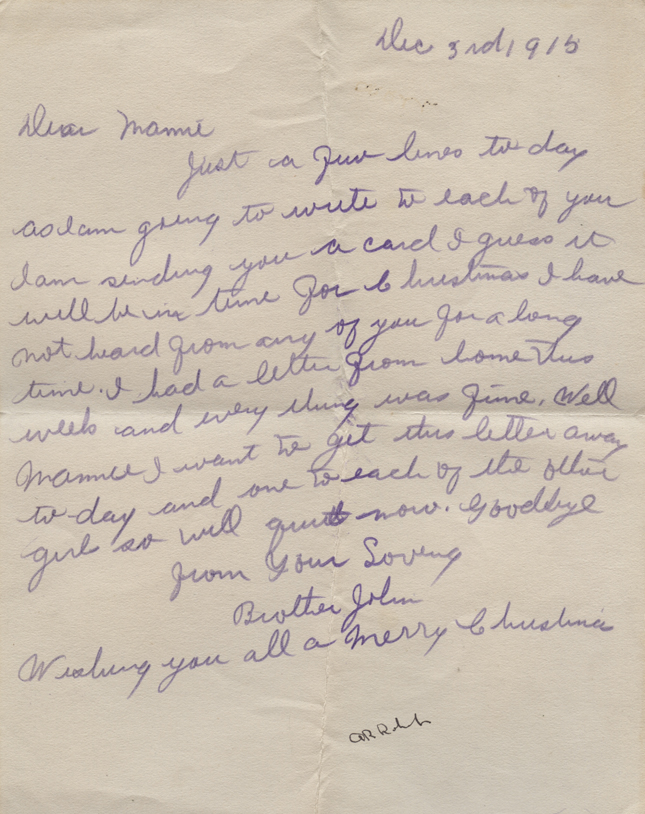 Dec 3rd 1915
Dear Mamie
Just a few lines to day
as I am going to write to each of you
I am sending you a card I guess it
will be in time for Christmas I have
not heard from any of you for a long
time. I had a letter from home this
week and every thing was fine. Well
Mamie I want to get this letter away
to-day and one to each of the other
girls so will quit now. Goodbye
from Your Loving
Brother John
Wishing you all a Merry Christmas